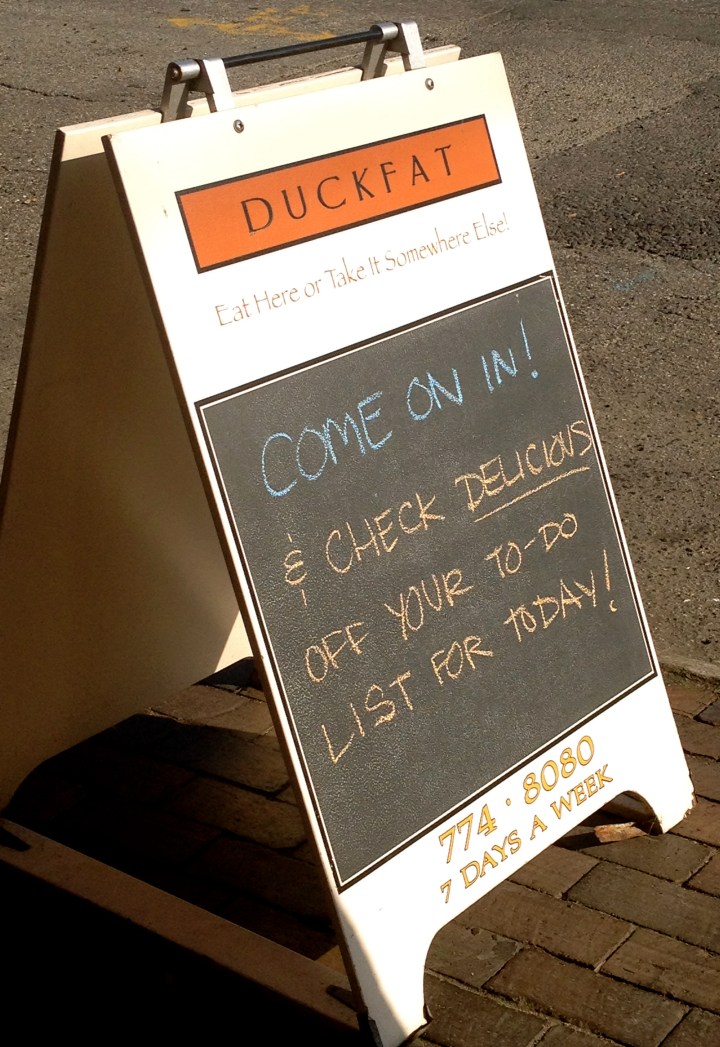 DUCKFAT
Eat Here or Take It Somewhere Else!
COME ON IN!
& CHECK DELICIOUS
OFF YOUR TO-DO
LIST FOR TODAY!
774 · 8080
7 DAYS A WEEK